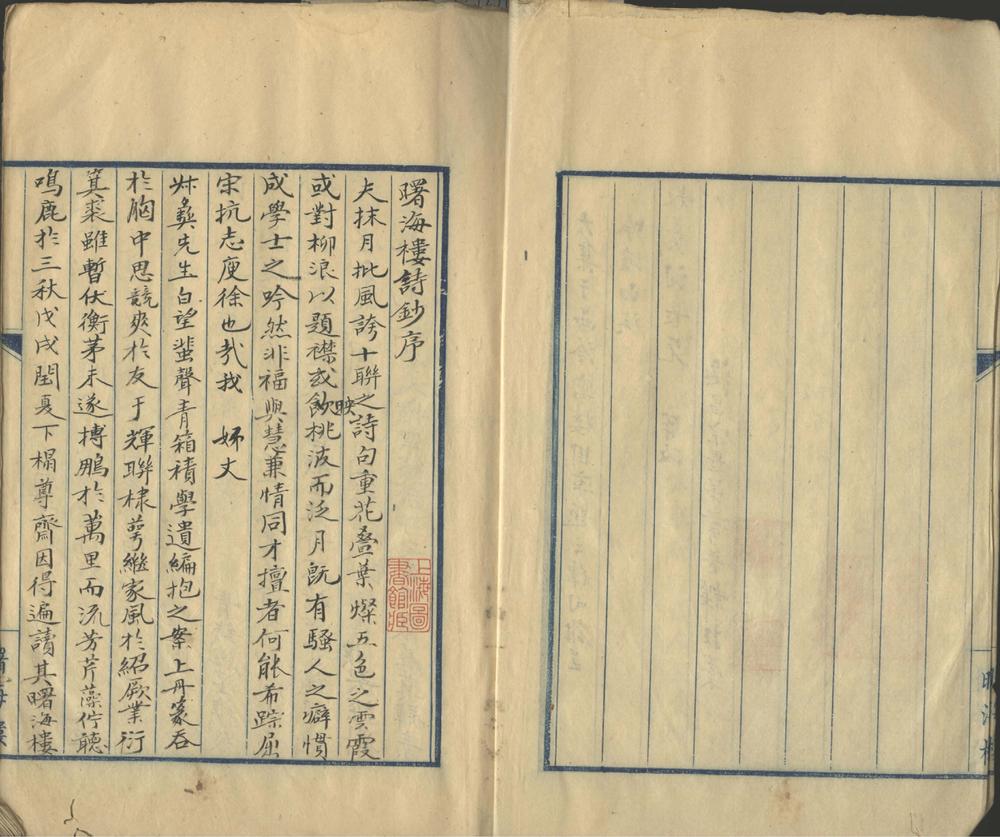 曙海樓詩鈔序
夫抹月批風誇十聯之詩句重花叠葉燦五色之雲霞
或對柳浪以題襟或飲映桃波而泛月既有騷人之癖慣
成學士之吟然非福與慧兼情同才擅者何能希踪屈
宋抗志庾徐也哉我 姊丈
叔彝先生白望蜚聲青箱積學遺編抱之案上丹篆吞
於胸中思競爽於友于輝聯棣萼繼家風於紹厥業衍
箕裘雖暫伏衡茅未遂摶鵬於萬里而流芳芹藻佇聽
鳴鹿於三秋戊戌閏夏下榻尊齋因得遍讀其曙海樓
上海圖書館藏
曙海樓